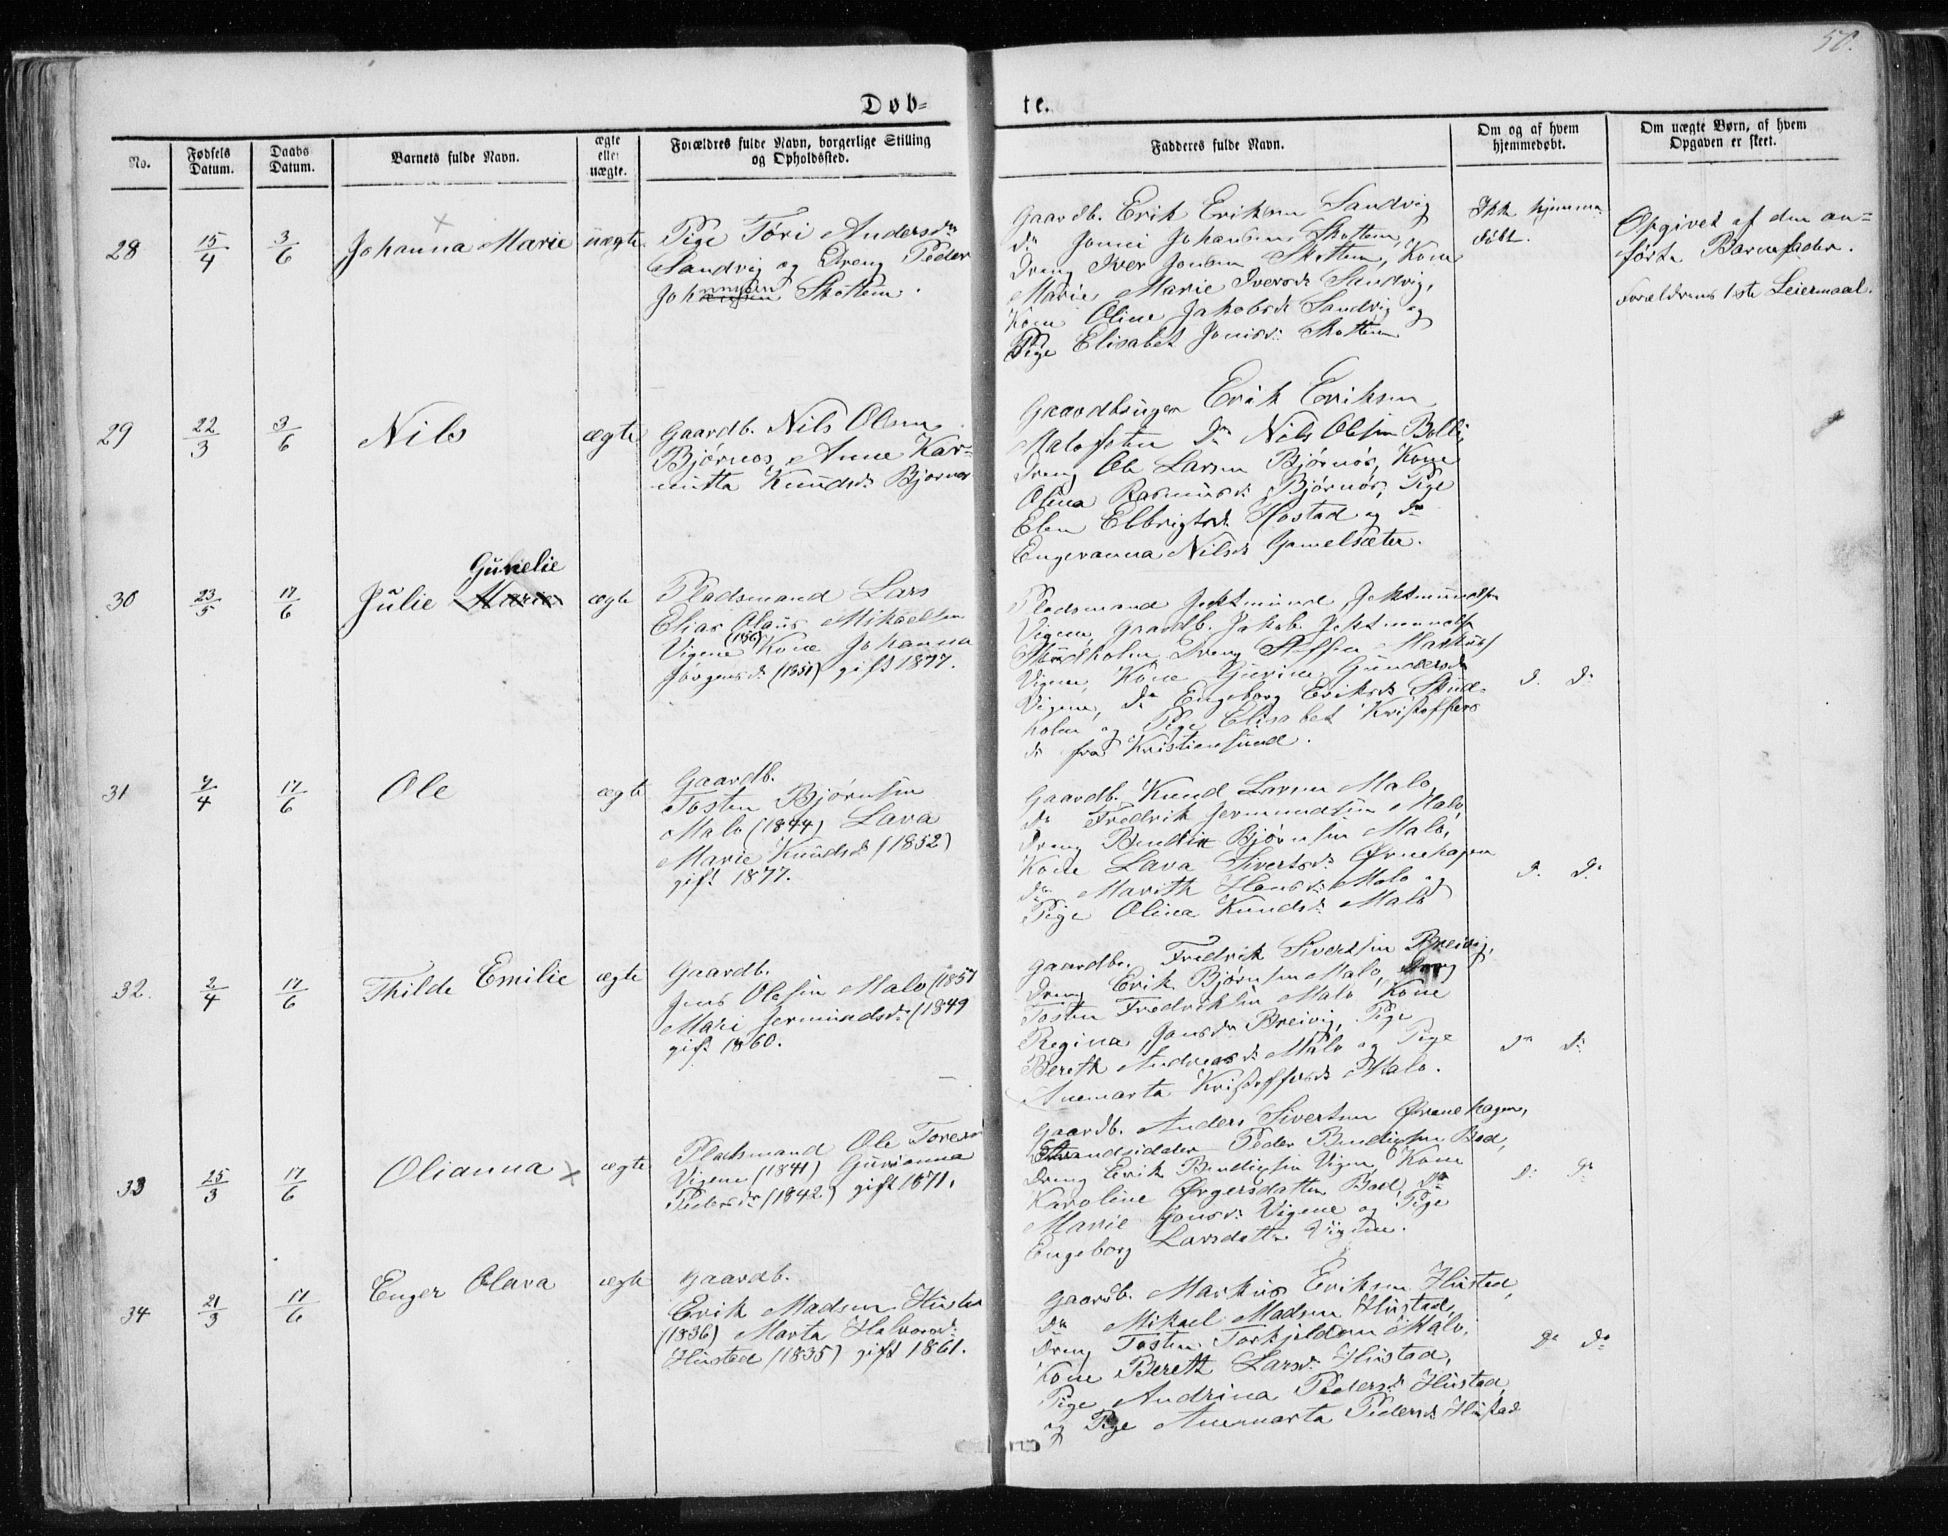 50.
Døb-
te.
No.
Fødsels Datum.
Daabs Datum.
Barnets fulde Navn.
ægte eller uægte.
Forældres fulde Navn, borgerlige Stilling og Opholdssted.
Fadderes fulde Navn.
Om og af hvem hjemmedøbt.
Om uægte Børn, af hvem Opgaven er skeet.
28
15/4
3/6
Johanna Marie
uægte
Pige Töri Andersdr
Sandvig og Dreng Peder
Skottem.
Gaardb. Erik Eriksen Sandvig
do Jonni Johansen Skottem,
Dreng Iver Jonsen Skottem, Kone
Marie Marie Iversdr Sandvig,
Kone Oline Jakobsdr Sandvig og
Pige Elisabet Jonisdr Skottem
Ikke hjemme-
døbt.
Opgivet af den an-
førte Barnefader.
Forældrenes 1ste Leiermaal.
29
22/3
3/6
Nils
ægte
Gaardb. Nils Olsen
Bjørnøs, Anne Kar-
nitta Knudsdr Bjørnøs
Gaardbruger Erik Eriksen
Malosten do Nils Olsen Bolli,
Dreng Ole Larsen Bjørnøs, Kone
Olina Rasmusdr Bjørnøs, Pige
Elen Ellbrigtsdr Hostad og do
Engeranna Nilsdr Gamelsæter.
30
23/5
17/6
Gurielie
Julie Marie
ægte
Pladsmand Lars
Elias Olaus Mikaelsen
Vigene Kone Johanna
Jørgensdr (1851) gift 1877.
Pladsmand Jektmund Jektmundsen
Vigene, Gaardb. Jakob Jektmundsen
Studholm, Dreng Steffen Markus
Vigene, Kone Gurine Gundersdr
Vigene, do Engeborg Eriksdr Stud-
holm og Pige Elisabet Kristoffers
dr fra Kristiansund.
do do
31
7/4
17/6
Ole
ægte
Gaardb.
Tosten Bjørnsen
Malo (1844) Lava
Marie Knudsdr (1852)
gift 1877.
Gaardb. Knud Larsen Malo,
do Fredrik Jermundsen Malo,
Dreng Bendix Bjørnsen Malo,
Kone Lava Sivertsdr Ørnehagen
do Marith Hansdr Malo og
Pige Olina Knudsdr Malo
do do
32.
2/4
17/6
Thilde Emilie
ægte
Gaardb.
Jens Olesen Malo (1851
Mari Jermundsdr (1849
gift 1860.
Gaardb. Fredrik Sivertsen Breivig,
Dreng Erik Bjørnsen Malo, Dreng
Tosten Fredriksen Malo Kone
Regina Jonsdr Breivig, Pige
Bereth Andreasdr Malo og Pige
Anemarta Kristoffersdr Malo.
do do
33
25/3
17/6
Olianna
ægte
Pladsmand Ole Toresen
Vigene (1841) Gurianna
Pedersdr (1842) gift 1871.
Gaardb. Anders Sivertsen Ørnehagen,
Strandsidder Peder Bendixsen Bod,
Dreng Erik Bendixsen Vigene, Kone
Karoline Ørgersdatter Bod, do
Marie Jonsdr Vigene og Pige
Engeborg Larsdatter Vigene.
do do
34
21/3
17/6
Enger Olava
ægte
Gaardb.
Erik Madsen Hustad
(1836) Marta Halvorsdr
Hustad (1835) gift 1861.
Gaardb. Markus Eriksen Hustad,
do Mikael Madsen Hustad,
Dreng Tosten Torkjeldsen Malo,
Kone Bereth Larsdr Hustad,
Pige Andrina Pedersdr Hustad
og Pige Anemarta Pedersdr Hustad
do do